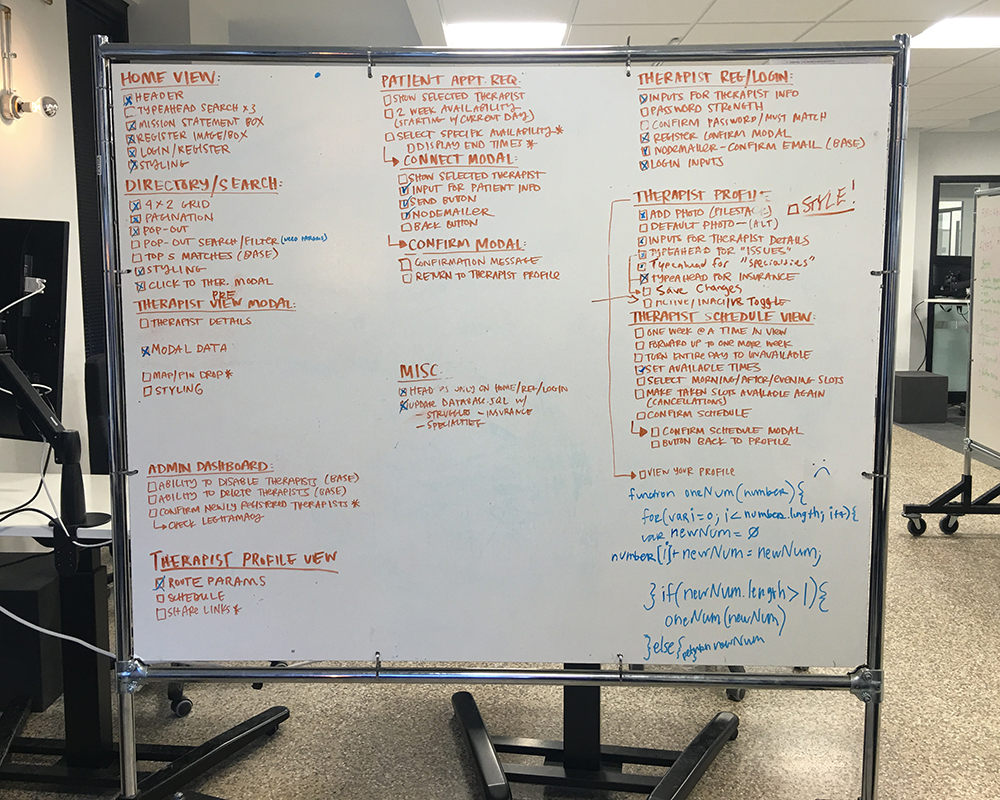 HOME VIEW:
HEADER
TYPEAHEAD SEARCH x 3
MISSION STATEMENT BOX
REGISTER IMAGE/BOX
LOGIN/REGISTER
STYLING
DIRECTORY/SEARCH:
4 x 2 GRID
PAGINATION
POP-OUT
POP-OUT SEARCH/FILTER (NEED PARAMS)
TOP 5 MATCHES (BASE)
STYLING
CLICK TO THER. MODAL
PRE
THERAPIST VIEW MODAL:
THERAPIST DETAILS
MODAL DATA
MAP/PIN DROP*
STYLING
ADMIN DASHBOARD:
ABILITY TO DISABLE THERAPISTS (BASE)
ABILITY TO DELETE THERAPISTS (BASE)
CONFIRM NEWLY REGISTERED THERAPISTS *
CHECK LEGITAMACY
THERAPIST PROFILE VIEW
ROUTE PARAMS
SCHEDULE
SHARE LINKS*
PATIENT APPT. REQ.
SHOW SELECTED THERAPIST
2 WEEK AVAILABILITY
(STARTING W/CURRENT DAY)
SELECT SPECIFIC AVAILABILITY*
DISPLAY END TIMES *
CONNECT MODAL:
SHOW SELECTED THERAPIST
INPUT FOR PATIENT INFO
SEND BUTTON
NODEMAILER
BACK BUTTON
CONFIRM MODAL:
CONFIRMATION MESSAGE
RETURN TO THERAPIST PROFILE
MISC.
HEAD ONLY ON HOME/REG/LOGIN
UPDATE DATABASE.SQL W/
- STRUGGLES - INSURANCE
- SPECIALTIES
THERAPIST REG/LOGIN:
INPUTS FOR THERAPIST INFO
PASSWORD STRENGTH
CONFIRM PASSWORD/MUST MATCH
REGISTER CONFIRM MODAL
NODEMAILER-CONFIRM EMAIL (BASE)
LOGIN INPUTS
THERAPIST PROFILE
STYLE!
ADD PHOTO (FILESTACK)
DEFAULT PHOTO-(ALT)
INPUTS FOR THERAPIST DETAILS
TYPEAHEAD FOR "ISSUES"
Typeahead for "Specialties"
TYPEAHEAD FOR INSURANCE
Save Changes
ACTIVE/INACTIVE TOGGLE
THERAPIST SCHEDULE VIEW:
ONE WEEK @ A TIME IN VIEW
FORWARD UP TO ONE MORE WEEK
TURN ENTIRE DAY TO UNAVAILABLE
SET AVAILABLE TIMES
SELECT MORNING/AFTER/EVENING SLOTS
MAKE TAKEN SLOTS AVAILABLE AGAIN
(CANCELLATIONS)
CONFIRM SCHEDULE
CONFIRM SCHEDULE MODAL
BUTTON BACK TO PROFILE
VIEW YOUR PROFILE
function oneNum(number){
for(var i=0; i<number.length; i++){
var newNum = Ø
number[i]+newNum = newNum;
} if(newNum.length>1){
oneNum(newNum)
}else{return newNum